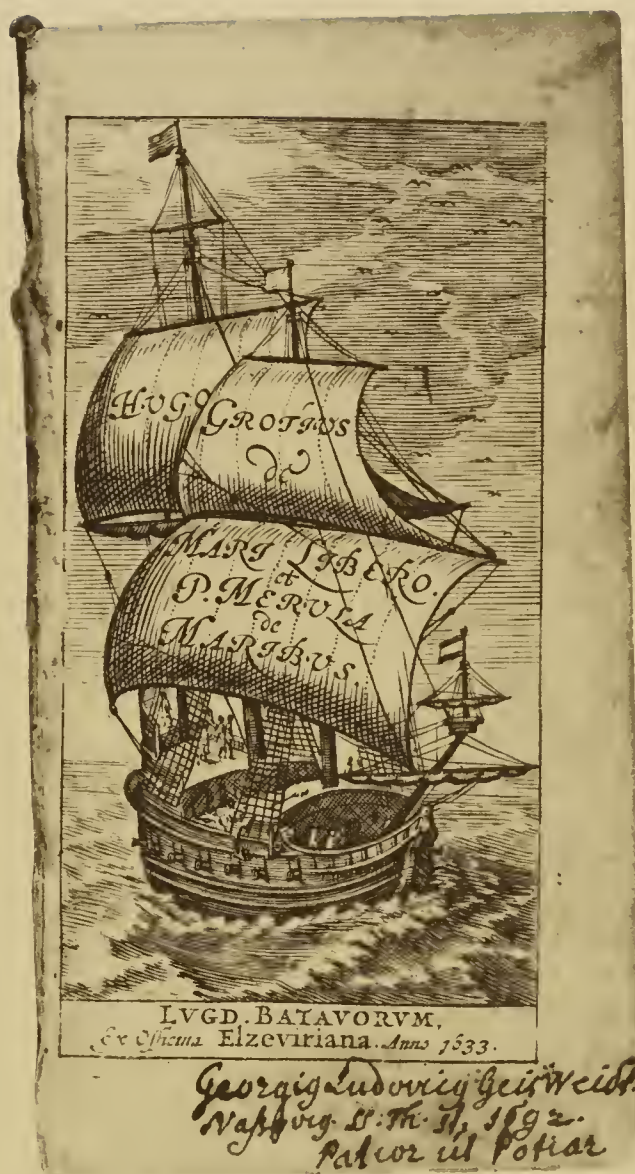 HUGO
GROTIUS
de
MARI LIBERO.
et
P. MERULA
de
MARIBUS.
LVGD. BATAVORVM,
Ex Officina Elzeviriana. Anno 1633.
Georgig Ludovicg
1692.
Patior ut Potiar